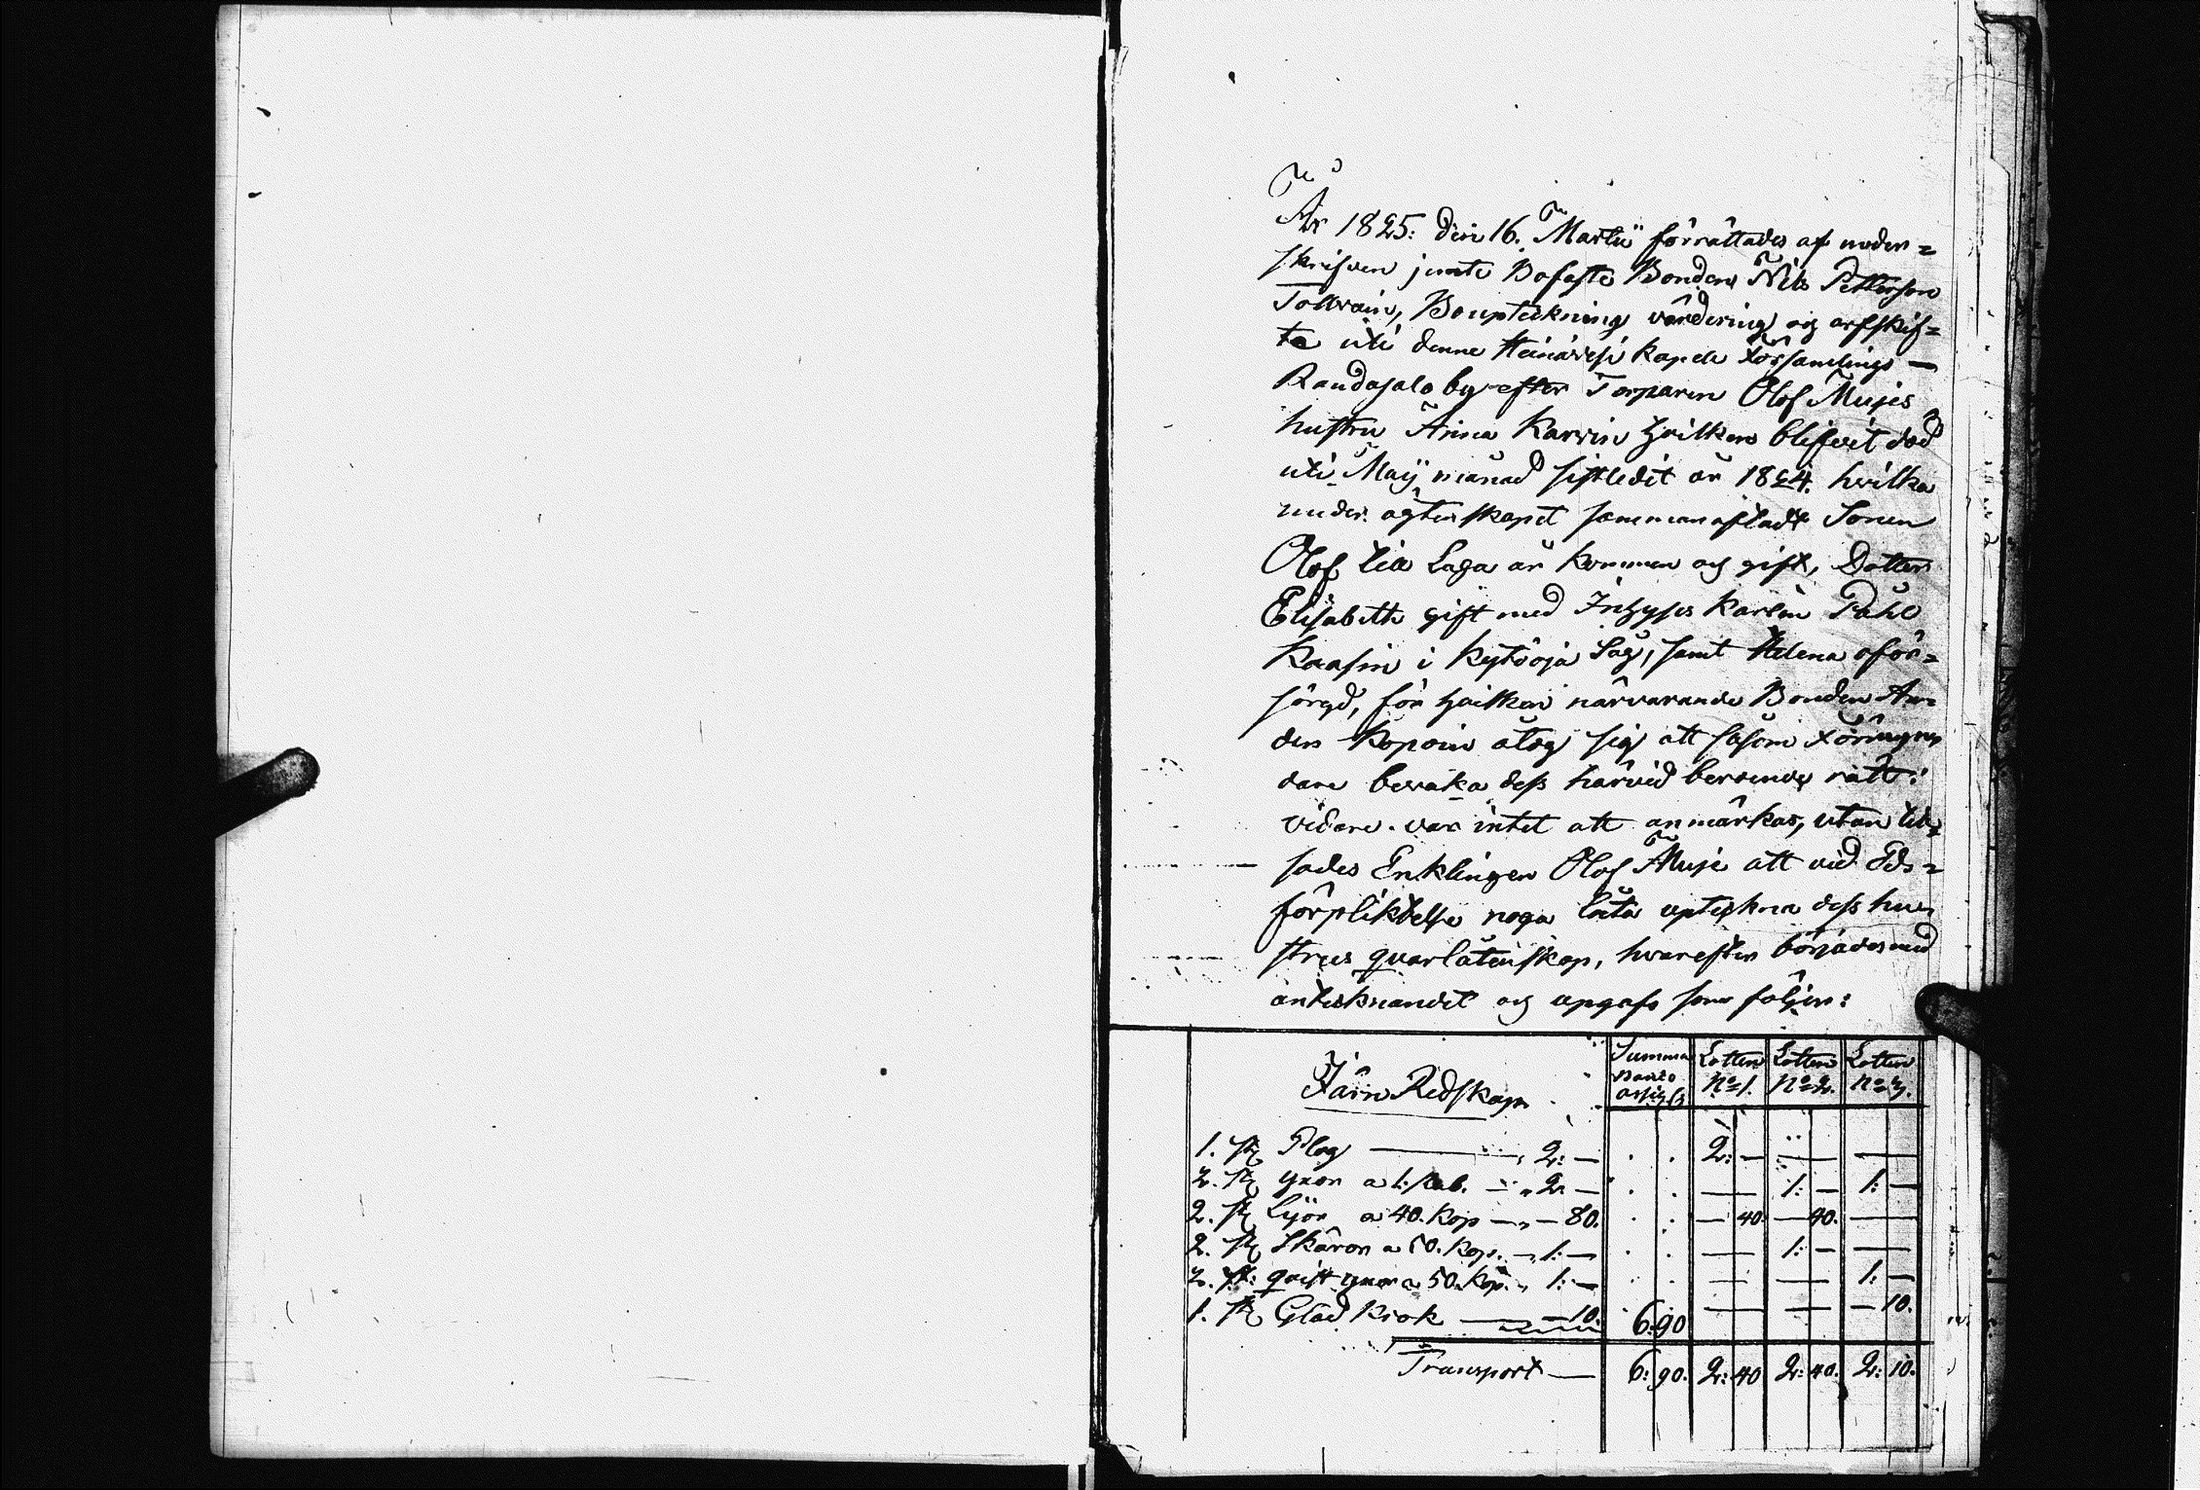 År 1825: den 16. Martii förrättades af under=
skrifven jemte Bofaste Bonden Nils Pettersson
Tollvain, Bouptekning värdering og arfskif=
te uti denne Heinävesi kapell Församlings —
Raudasalo by efter Torparen Olof Mujes
hustru Anna Karvin hvilken blifvit död
uti Maij månad sistledit år 1824. hvilka
under ägtenskapet sammanafladt Sonen
Olof till Laga år kommen og gift, Dotter
Elisabeth gift med Inhyses Karlen Påhl
Kaasin i Kytöoja Såg, samt Helena oför=
sörgd, för hvilken närvarande Bonden An=
ders Kopoin åtog sig att såsom Förmyn
dare bevaka dess härvid beroende rätt:
vidare var intet att anmärkas, utan till
sades Enklingen Olof Muje att vid Eds=
förpliktelse noga låta uptekna dess hu=
strus quarlåtenskap, hvarefter börjades med
anteknandet og upgafs som följer:
Järn Redskap Summa Banco Lotten No 1. Lotten No 2. Lotten No 3.
1. st Plog — 2: — 2: — — —
2. st yxor a 1: Rub. — 2: — — 1: — 1: —
2. st Lijor a 40. kop — — 80. — 40. — 40. —
2. st Skäror a 50. kop. — 1: — — 1: — —
2. st: quist yxor a 50. kop. 1: — — — 1: —
1. st Glad krok — — 10. 6: 90 — — — 10.
Transport — 6: 90. 2: 40 2: 40. 2: 10.